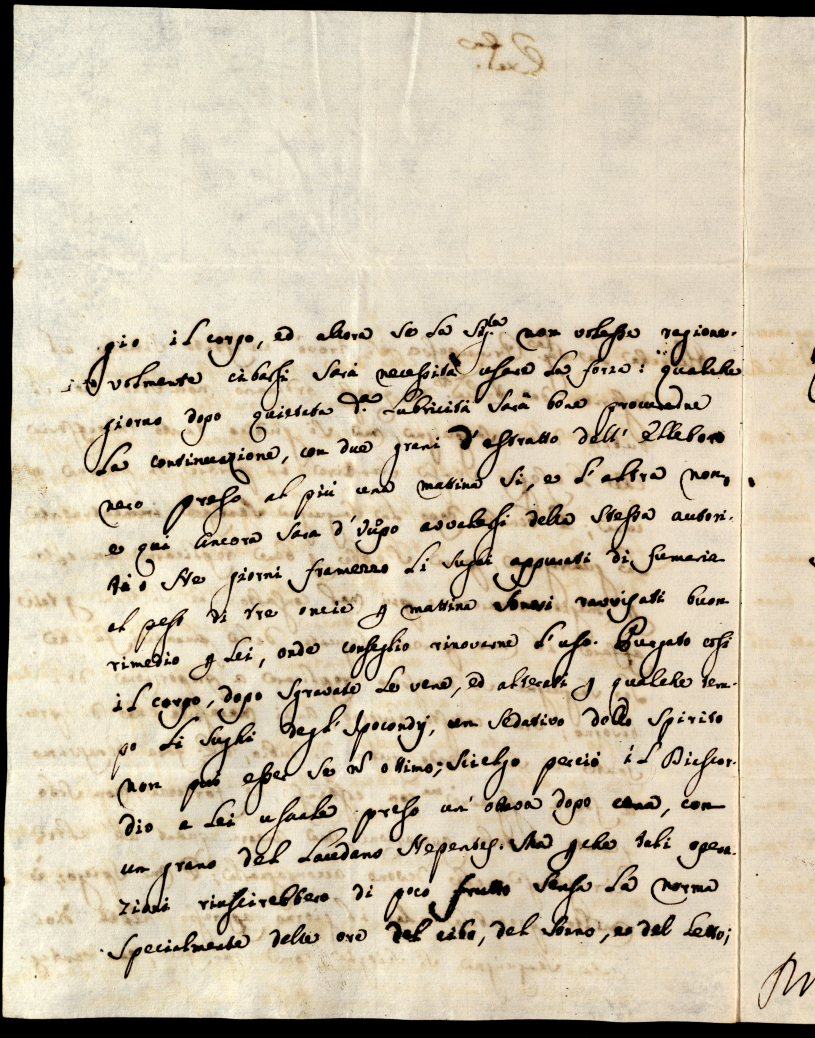 gio il corpo, ed allora se la Sig.ra non volesse ragione-
volmente cibarsi sarà necessità usare la forza: qualche
giorno dopo quietata d.a Lubricità sarà bene procurarne
la continuazione, con due grani d'estratto dell'Elleboro
nero preso al più una mattina sì, e l'altra non,
e qui ancora sarà d'uopo avvalersi della stessa autori-
tà ò Ne giorni framezzo li sughi appurati di fumaria
al peso di tre oncie p mattina sonosi ravvisati buon
rimedio p Lei, onde consiglio rinovarne l'uso. Purgato così
il corpo, dopo sgravate le vene, ed alterati p qualche tem-
po li sughi degl'Ipocondrj, un sedativo dello spirito
non può esser se nō ottimo; scielgo perciò il Diascor-
dio a Lei usuale preso un'ottava dopo cena, con
un grano del Laudano Nepentes. Ma pche tali opera-
zioni riuscirebbero di poco frutto senza la norma
specialmente delle ore del cibo, del sonno, e del Letto;